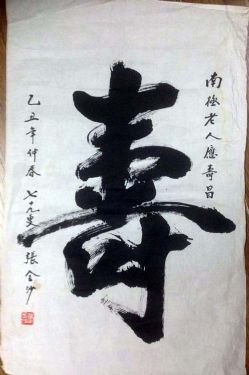 南極老人應壽昌
壽
乙丑年仲春 七九叟 張金